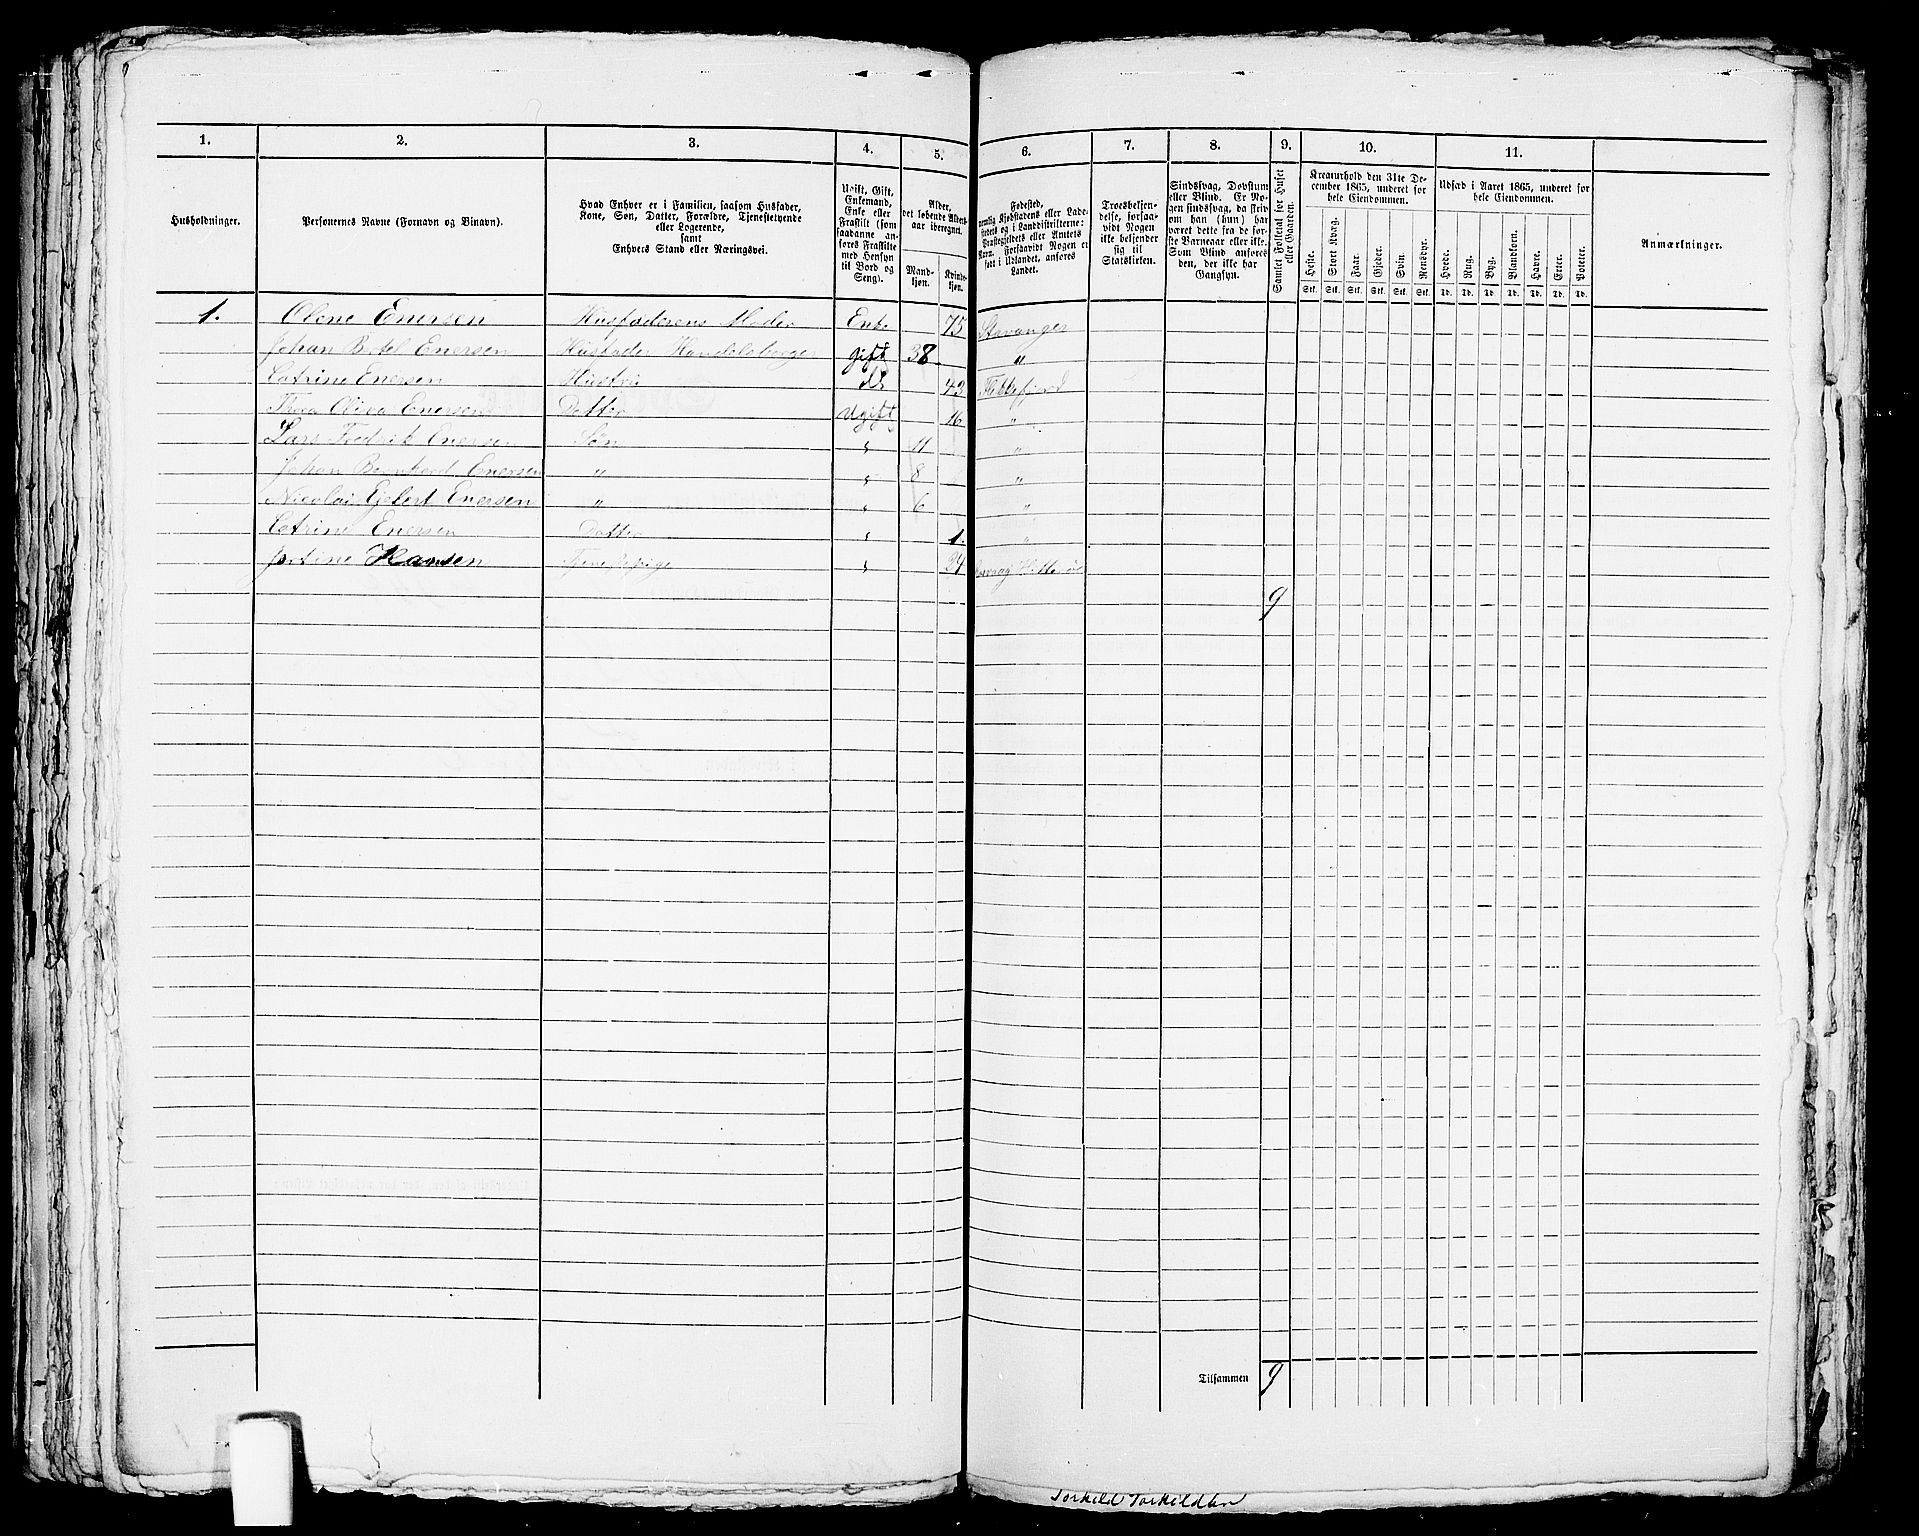 1. 2. 3. 4. 5. 6. 7. 8. 9. 10. 11.
Husholdninger.
Personernes Navne (Fornavn og Binavn).
Hvad Enhver er i Familien, saasom Husfader,
Kone, Søn, Datter, Forældre, Tjenestetyende
eller Logerende,
samt
Enhvers Stand eller Næringsvei.
Ugift, Gift,
Enkemand,
Enke eller
Fraskilt (som
saadanne an-
føres Fraskilte
med Hensyn
til Bord og
Seng).
Alder,
det løbende Alders-
aar iberegnet.
Mand-
kjøn.
Kvinde-
kjøn.
Fødested,
nemlig Kjøbstadens eller Lade-
stedets og i Landdistrikterne:
Præstegjeldets eller Amtets
Navn. Forsaavidt Nogen er
født i Udlandet, anføres
Landet.
Troesbekjen-
delse, forsaa-
vidt Nogen
ikke bekjender
sig til
Statskirken.
Sindssvag, Døvstum
eller Blind. Er No-
gen sindssvag, da skri-
ves om han (hun) har
været dette fra de før-
ste Barneaar eller ikke.
Som Blind anføres
den, der ikke har
Gangsyn.
Samlet Folketal for Huset
eller Gaarden.
Kreaturhold den 31te De-
cember 1865, underet for
hele Eiendommen.
Heste. Stort Kvæg. Faar. Gjeder. Svin. Rensdyr.
Stk. Stk. Stk. Stk. Stk. Stk.
Udsæd i Aaret 1865, underet for
hele Eiendommen.
Hvede. Rug. Byg. Blandkorn. Havre. Erter. Poteter.
Td. Td. Td. Td. Td. Td. Td.
Anmærkninger.
1. Olene Enersen Husfaderens Moder Enke 75 Stavanger
Johan Enersen Husfader Handelsborger gift 38 "
Catrine Enersen Hustru do 43 Flekkefjord
Thora Oliva Enersen Datter Ugift 16 "
Lars Fredrik Enersen Søn " 11 "
Johan Bernhard Enersen " " 8 "
Nicolai Enersen " " 6 "
Catrine Enersen Datter " 1. "
Jortine Hansen Tjenestepige " 24 Hitterøe
9
Tilsammen 9
Torkild Torkildsen